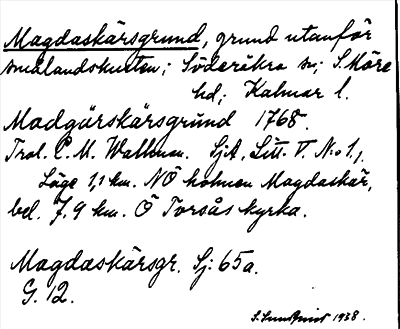 Magdaskärsgrund, grund utanför
smålandskusten; Söderåkra sn; S. Möre
hd; Kalmar l.
Madgärskärsgrund 1768.
Trol. C. M. Wallman. SjA, Litt. V. N:o 1.
Läge 1,1 km. NÖ holmen Magdaskär,
bel. 7.9 km. Ö Torsås kyrka.
Magdaskärsgr. Sj: 65a.
G. 12.
S. Sundqvist 1938.